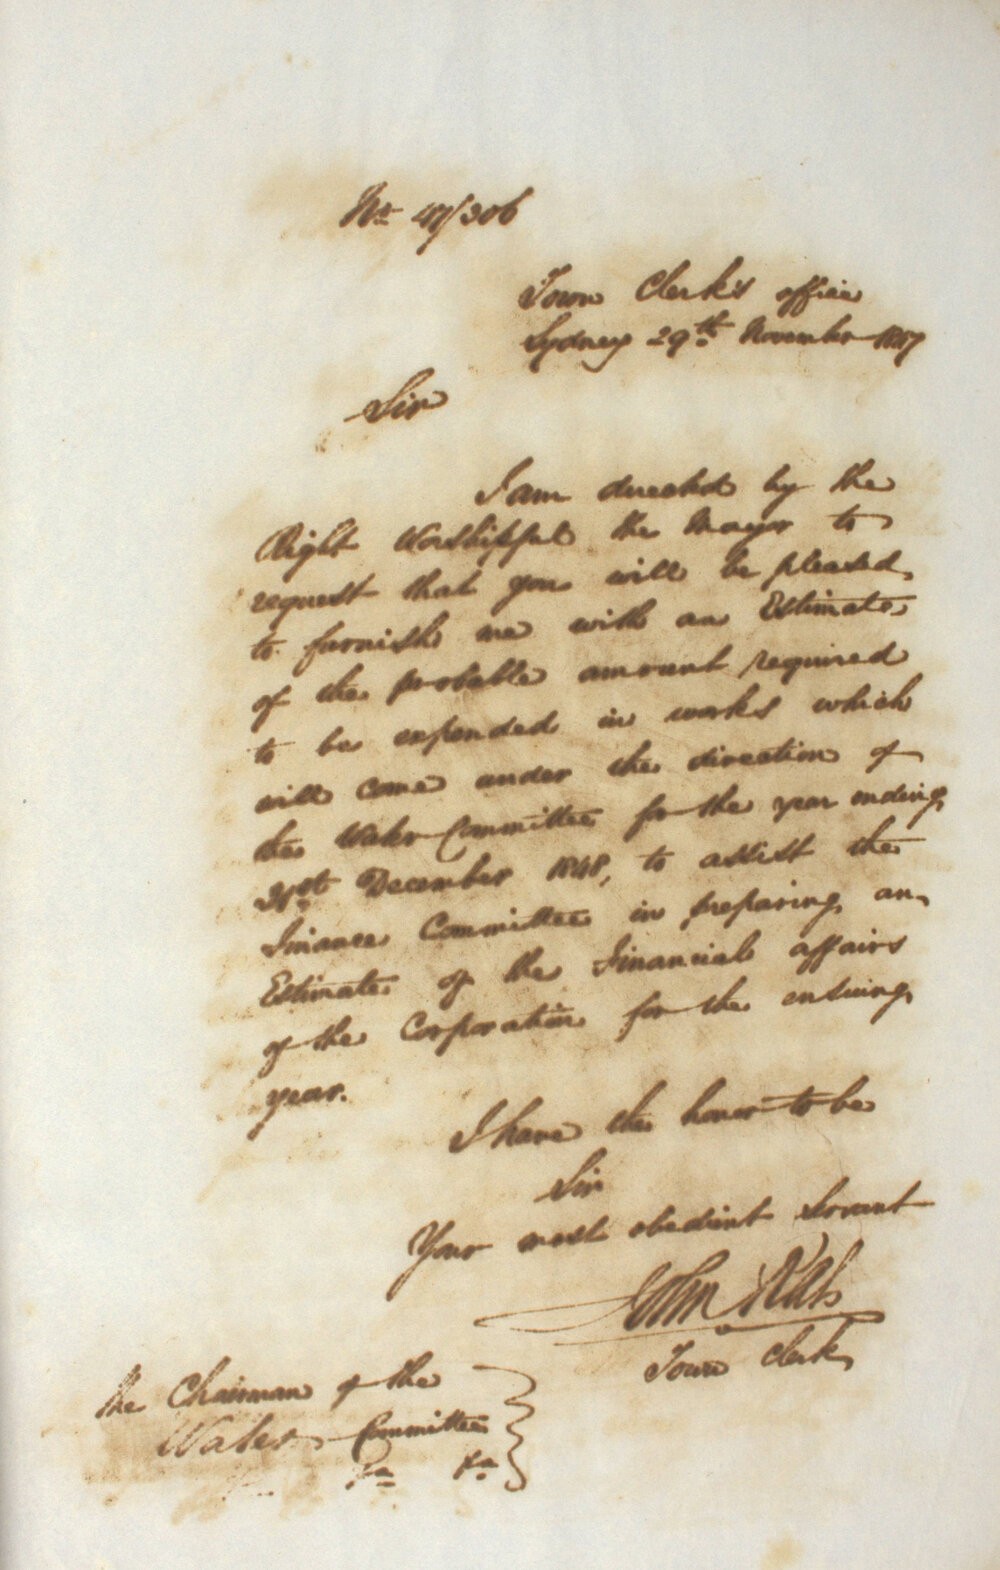 No. 47/306
Town Clerk's office
Sydney 29th November 1847
Sir
I am directed by the
Right Worshipful the Mayor to
request that you will be pleased
to furnish me with an Estimate
of the probable amount required
to be expended in works which
will come under the direction of
the Water Committee for the year ending
31st December 1848, to assist the
Finance Committee in preparing an
Estimate of the Financial affairs
of the Corporation for the ensuing
year.
I have the honor to be
Sir
Your most obedient Servant
John
Town Clerk
The Chairman of the
Water Committee
&a &a